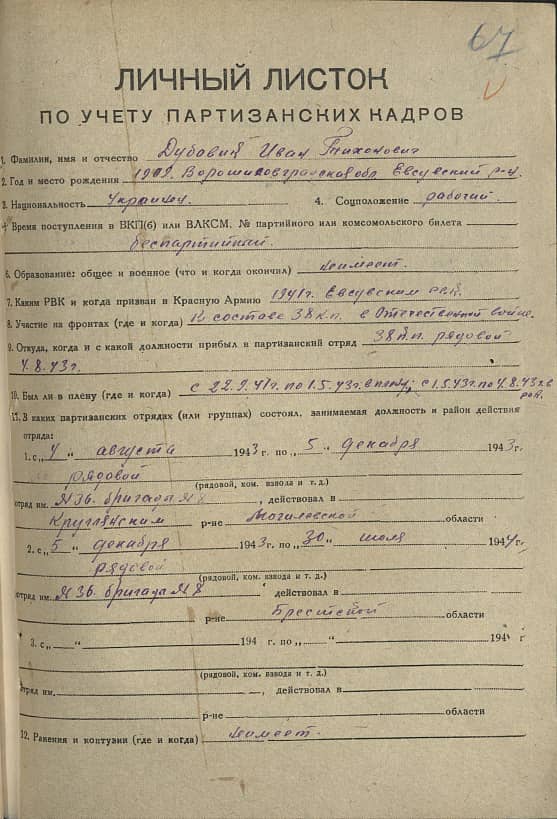 67
ЛИЧНЫЙ ЛИСТОК
ПО УЧЕТУ ПАРТИЗАНСКИХ КАДРОВ
1. Фамилия, имя и отчество Дубовик Иван Тихонович
2. Год и место рождения 1919. Ворошиловградская обл Евсугский р-н.
3. Национальность Украинец 4. Соцположение рабочий.
5. Время поступления в ВКП(б) или ВЛКСМ, № партийного или комсомольского билета
беспартийный.
6. Образование: общее и военное (что и когда окончил) неимеет.
7. Каким РВК и когда призван в Красную Армию 1941г. Евсугским рвк.
8. Участие на фронтах (где и когда) В составе 38 к.п. в Отечественной войне.
9. Откуда, когда и с какой должности прибыл в партизанский отряд 38 к.п. рядовой
4.8.43г.
10. Был ли в плену (где и когда) с 22.9.41г. по 1.5.43г. в плену, с 1.5.43г. по 4.8.43г. в
11. В каких партизанских отрядах (или группах) состоял, занимаемая должность и район действия
отряда:
1. с „4" августа 1943 г. по „5" декабря 1943 г.
рядовой
(рядовой, ком. взвода и т. д.)
отряд им. №36. бригада №8, действовал в
Круглянским р-не Могилевской области
2. с „5" декабря 1943 г. по „30" июля 1944 г.
рядовой
(рядовой, ком. взвода и т. д.)
отряд им. №36. бригада №8 действовал в
р-не Брестской области
3. с „ " 194 г. по „ " 194 г
(рядовой, ком. взвода и т. д.)
отряд им. , действовал в
р-не области
12. Ранения и контузии (где и когда) неимеет.